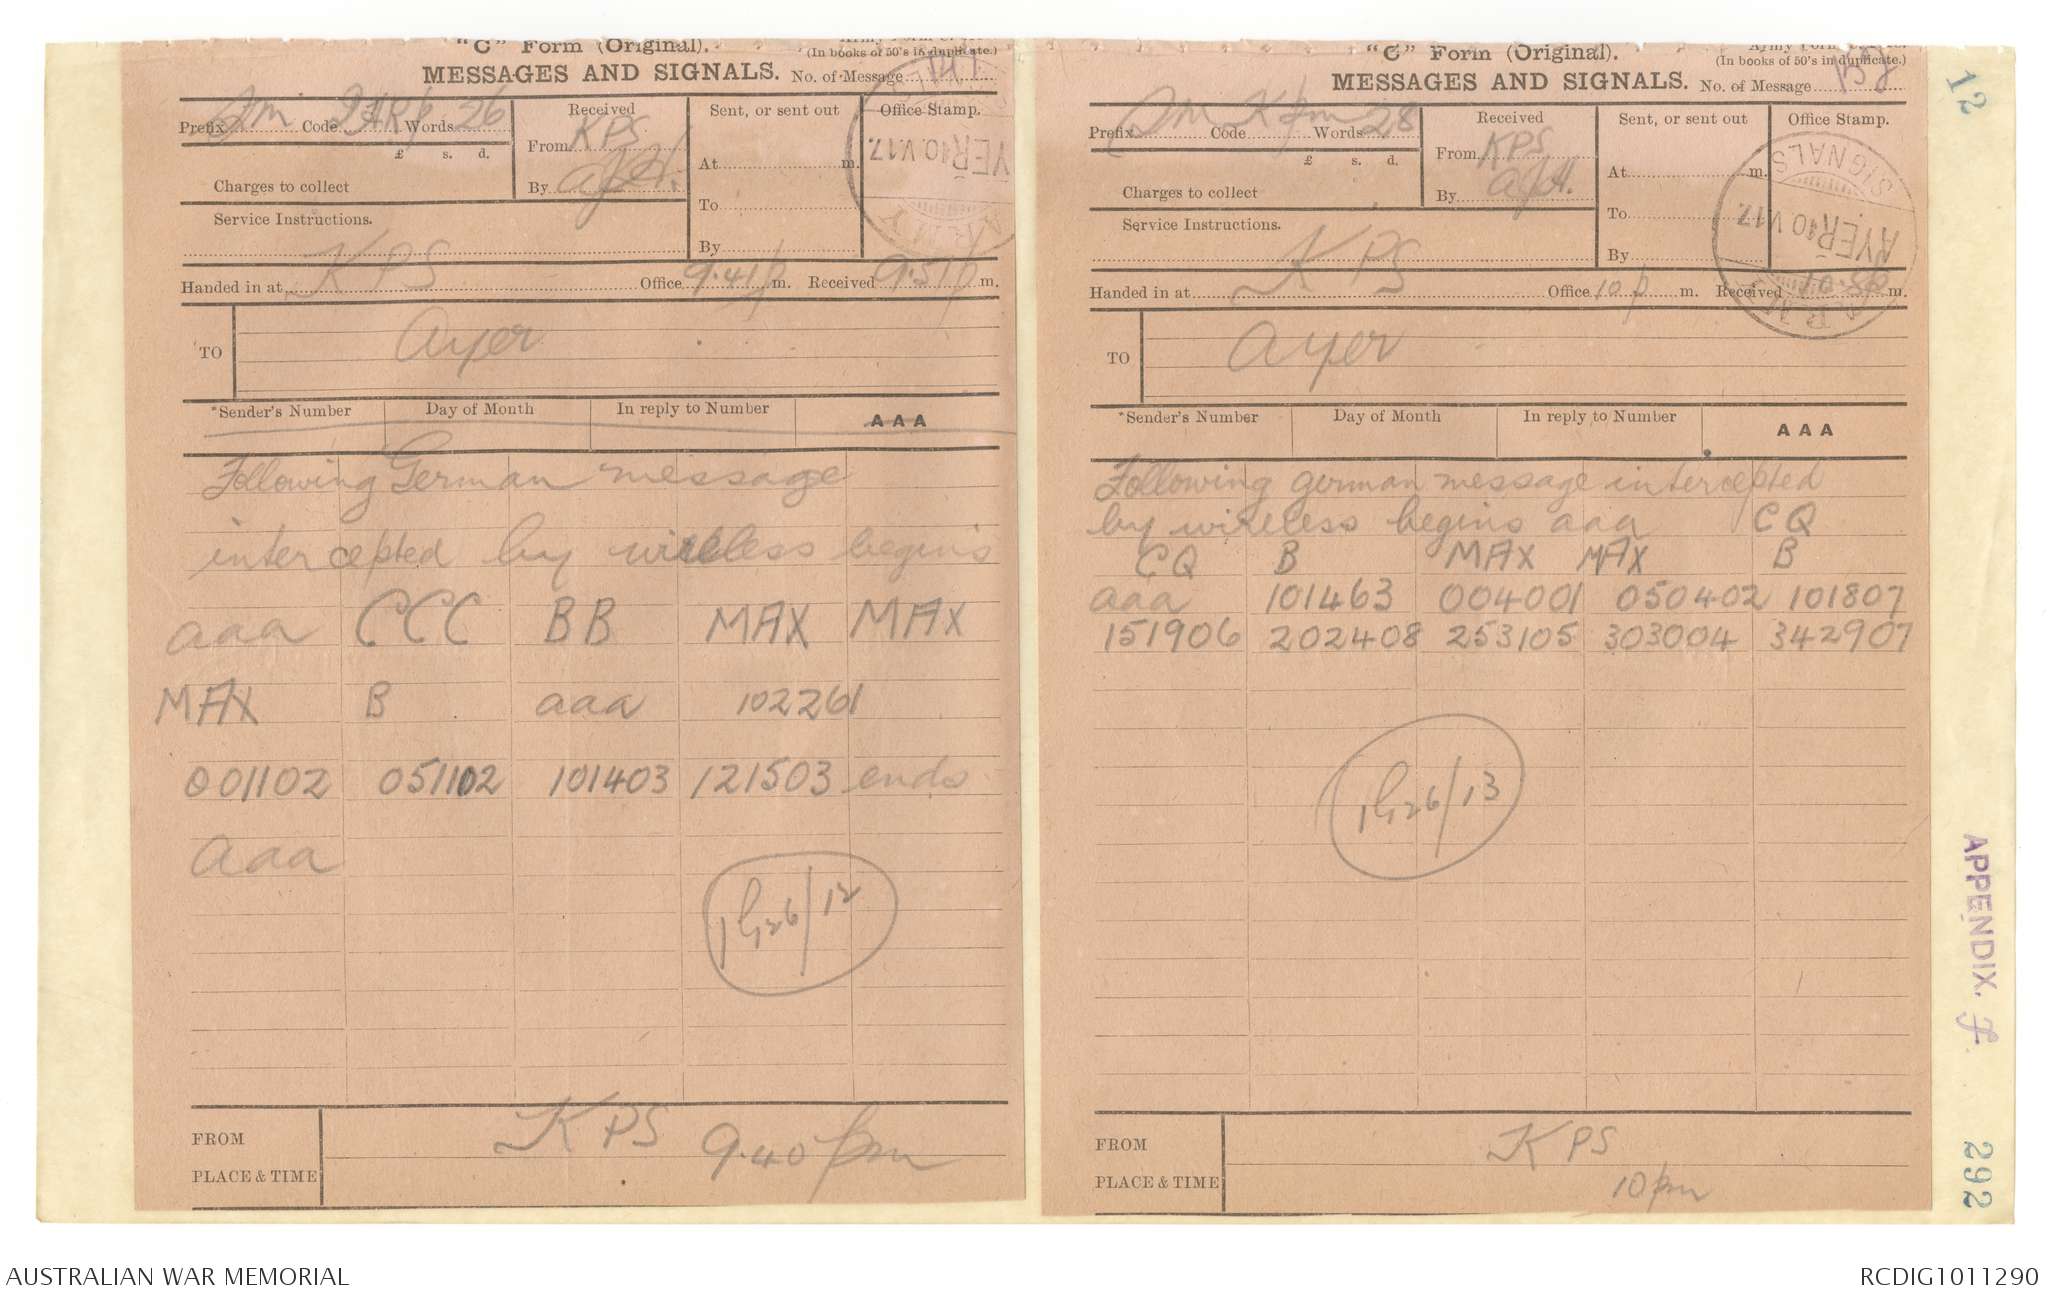 "C" Form (Original).
(In books of 50's in duplicate.)
MESSAGES AND SIGNALS. No. of Message
Prefix Sm Code Words 26
£ s. d.
Charges to collect
Service Instructions.
KPS
Received
From KPS
By
Sent, or sent out
At m.
To
By
Office Stamp.
AYER 10.V.17.
ARMY
Handed in at Office 9.41p m. Received 9.51p m.
TO Ayer
*Sender's Number Day of Month In reply to Number AAA
Following German message
intercepted by wireless begins
aaa CCC BB MAX MAX
MAX B aaa 102261
001102 051102 101403 121503 ends
aaa
FROM KPS 9.40 pm
PLACE & TIME
"C" Form (Original).
(In books of 50's in duplicate.)
MESSAGES AND SIGNALS. No. of Message
Prefix Sm Code Words 28
£ s. d.
Charges to collect
Service Instructions.
KPS
Received
From KPS
By
Sent, or sent out
At m.
To
By
Office Stamp.
SIGNALS
AYER 10.V.17.
ARMY
Handed in at Office 10 p m. Received m.
TO Ayer
*Sender's Number Day of Month In reply to Number AAA
Following german message intercepted
by wireless begins aaa CQ
CQ B MAX MAX B
aaa 101463 004001 050402 101807
151906 202408 253105 303004 342907
FROM KPS
PLACE & TIME 10 pm
12
APPENDIX. f.
292
AUSTRALIAN WAR MEMORIAL
RCDIG1011290